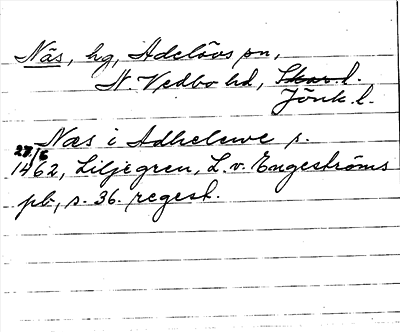 Näs, hg, Adelövs sn,
N. Vedbo hd, Skar. l.
Jönk. l.
Næs i Adhelewe s.
27/6
1462, Liljegren, L. v. Engeströms
pb, s. 36. regest.